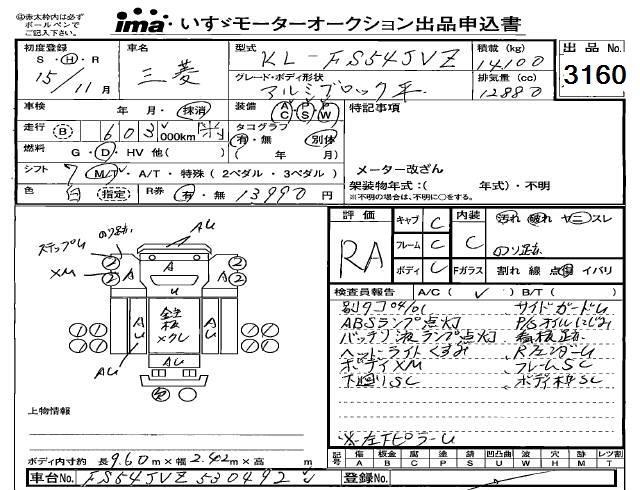 ①赤太枠内は必ず
ボールペンで
ご記入下さい。
ima いすゞモーターオークション出品申込書
初度登録
S・H・R
15/11月
車名
三菱
型式
KL-FS54JVZ
積載(kg)
14100
グレード・ボディ形状
アルミブロック平
排気量(cc)
12880
出品No.
3160
車検 年・月・抹消
装備 AC PS PW
特記事項
走行 B 603 000km
タコグラフ
有・無 別体
( 年 月)
燃料 G・D・HV 他( )
シフト 7 M/T・A/T・特殊(2ペダル・3ペダル)
メーター改ざん
色 白 指定 R券 有・無 13990円
架装物年式:( 年式)・不明
※不明の場合は、不明に○をする。
評価
RA
キャブ C
フレーム C
ボディ C
内装
C
Fガラス
汚れ 破れ ヤニ スレ
のり跡
割れ 線 点 傷 イバリ
検査員報告 A/C( ✓ ) B/T( )
別タコ04/01 サイドガードU
ABSランプ点灯 P/Sオイルにじみ
バッテリ液ランプ点灯 看板跡
ヘッドライトくすみ RフェンダーU
ボディXM フレームSC
下廻りSC ボディ枠SC
※左下ピラーU
のり跡
ステップU
XM
AU
A
U
AU
看板
メクレ
AU
A
AU
上物情報
ボディ内寸約 長9.60m×幅2.42m×高 m
記号
傷 板金 腐 塗 錆 凹凸曲 波 穴 跡 レツ割
A B C P S U W H M T
車台No. FS54JVZ530492
登録No.